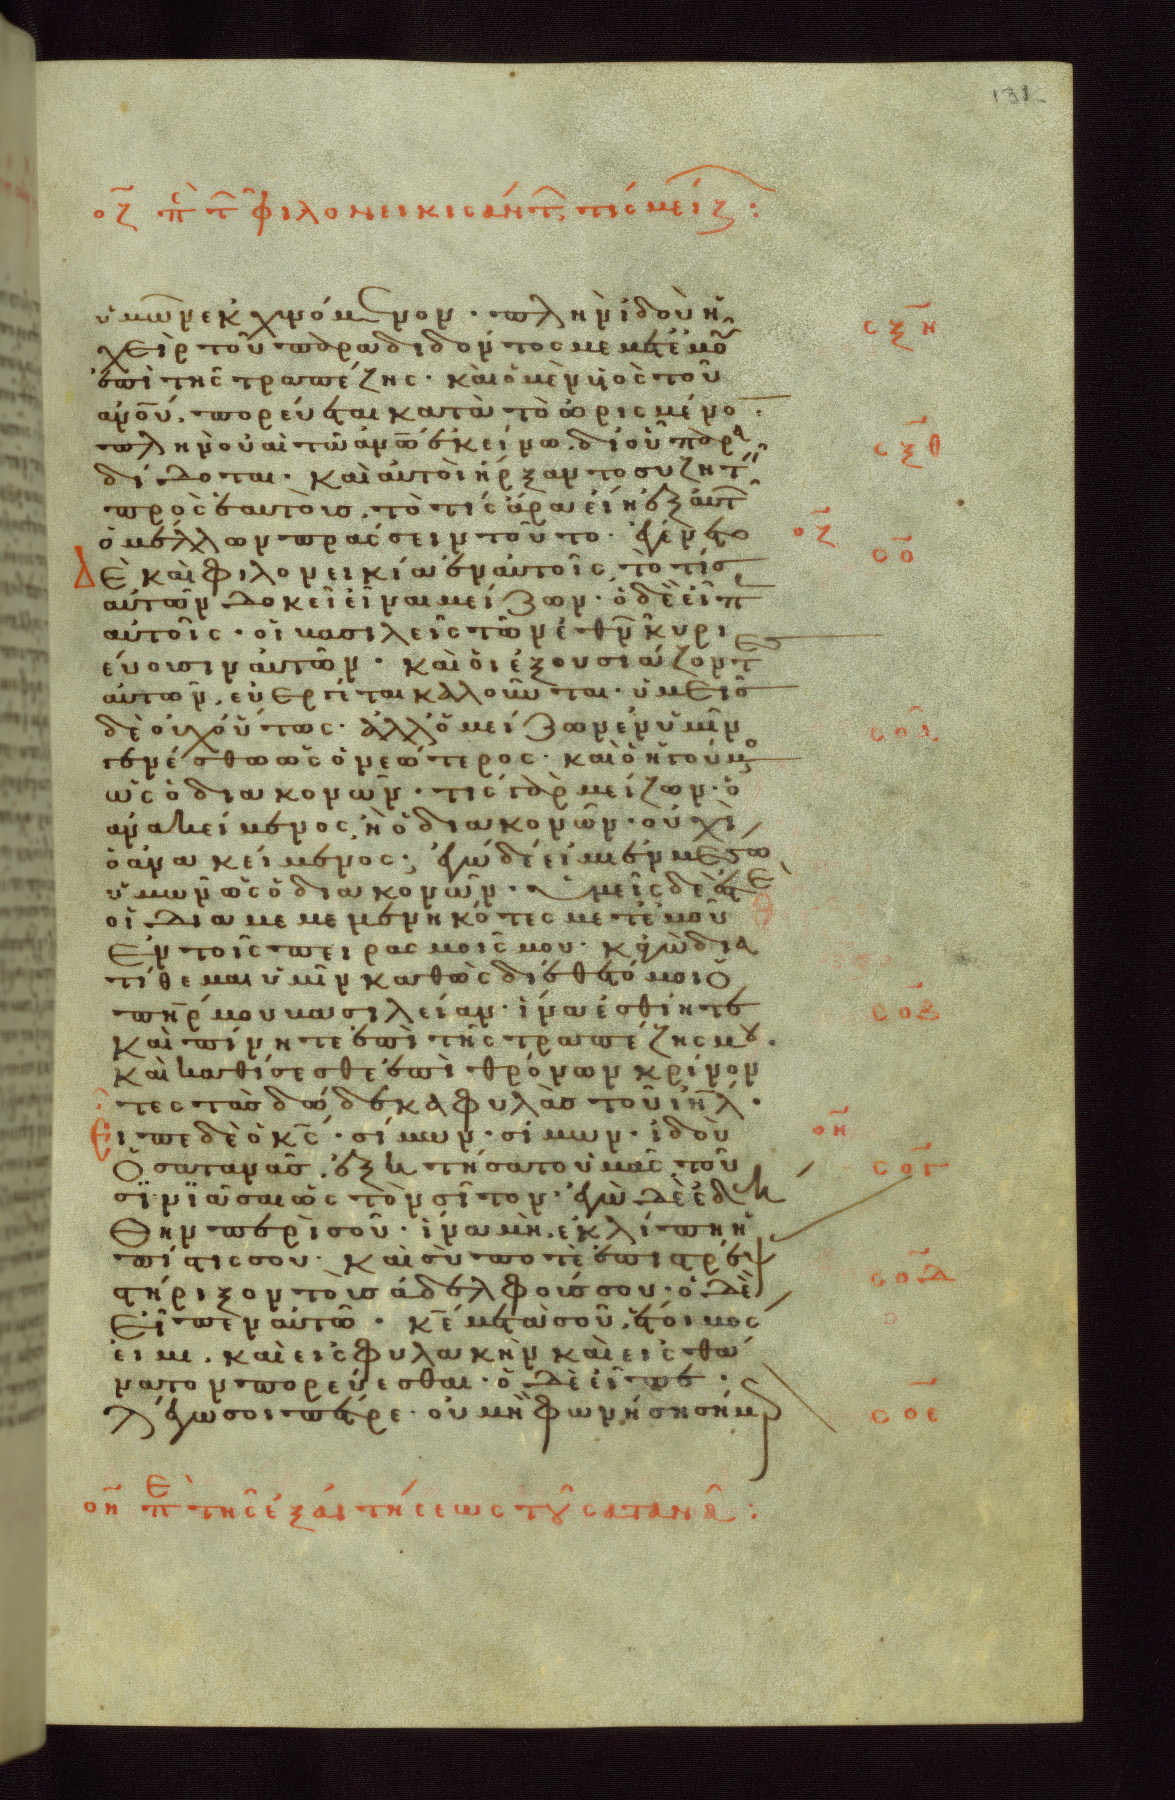 131
οζ πε τ φιλονεικισάντ, τίς μείζ :
ὑμῶν ἐκχυνόμενον · πλὴν ἰδοὺ ἡ
σξη
χεὶρ τοῦ παραδιδόντος με μετ ἐμοῦ
ἐπὶ τῆς τραπέζης · καὶ ὁ μὲν υἱὸς τοῦ
ανου, πορεύεται κατὰ τὸ ὡρισμένο ·
πλὴν οὐαὶ τῶ ανω ἐκείνω, δι οὗ παρα
σξθ
δίδοται · καὶ αὐτοὶ ἤρξαντο συζητ
πρὸς ἑαυτοὺς, τὸ τίς ἄρα εἴη ἐξ αὐτ
ὁ μέλλων πράσσειν τοῦτο · ἐγένετο
οζ
σο
Δὲ καὶ φιλονεικία ἐν αὐτοῖς, τὸ τίς
αὐτῶν δοκεῖ εἶναι μείζων · ὁ δὲ εἶπ
αὐτοῖς · οἱ βασιλεῖς τῶν ἐθνῶν κυρι
εύουσιν αὐτῶν · καὶ οἱ ἐξουσιάζοντ
αὐτῶν, εὐεργέται καλοῦνται · ὑμεῖς
δὲ οὐχ οὕτως · ἀλλ ὁ μείζων ἐν ὑμῖν
σοα
γενέσθω ὡς ὁ νεώτερος · καὶ ὁ ἡγούμενος
ὡς ὁ διακονῶν · τίς γὰρ μείζων · ὁ
ἀνακείμενος, ἢ ὁ διακονῶν · οὐχὶ
ὁ ἀνακείμενος; ἐγὼ δέ εἰμι ἐν μέσω
ὑμῶν ὡς ὁ διακονῶν · ὑμεῖς δέ ἐστε
οἱ διαμεμενηκότες μετ ἐμοῦ
ἐν τοῖς πειρασμοῖς μου · κἀγὼ δια
τίθεμαι ὑμῖν καθὼς διέθετό μοι ὁ
πηρ μου βασιλείαν · ἵνα ἐσθίητε
σοβ
καὶ πίνητε ἐπὶ τῆς τραπέζης μου ·
καὶ καθίσεσθε ἐπὶ θρόνων κρίνον
τες τὰς δώδεκα φυλὰς τοῦ ιηλ ·
Εἶπε δὲ ὁ κς · σίμων · σίμων · ἰδοὺ
οη
ὁ σατανᾶς, ἐξητήσατο ὑμᾶς, τοῦ
σογ
σινιᾶσαι ὡς τὸν σῖτον · ἐγὼ δὲ ἐδεή
θην περὶ σοῦ · ἵνα μὴ ἐκλίπη ἡ
πίστις σου · καὶ σύ ποτε ἐπιστρέψ
στήριξον τοὺς ἀδελφούς σου · ὁ δὲ
σοδ
εἶπεν αὐτῶ · κε μετὰ σοῦ, ἕτοιμός
εἰμι, καὶ εἰς φυλακὴν καὶ εἰς θά
νατον πορεύεσθαι · ὁ δὲ εἶπε ·
λέγω σοι πέτρε · οὐ μὴ φωνήσῃ σήμερ
σοε
οη πε τῆς ἐξαιτήσεως τοῦ σατανᾶ :